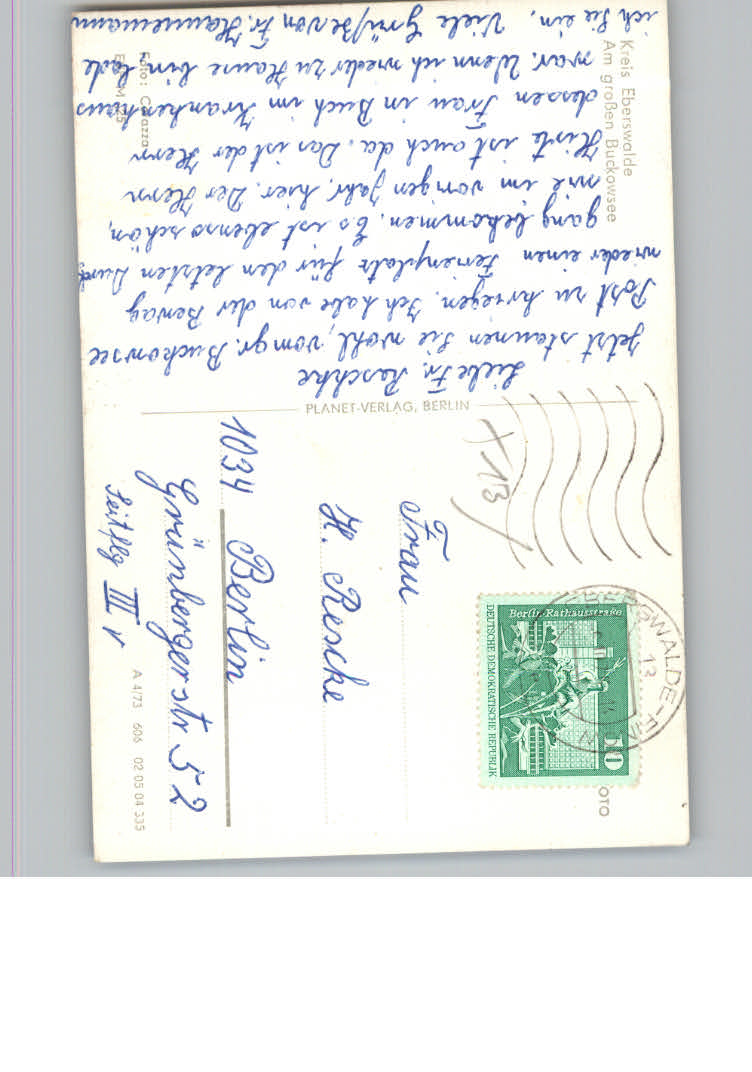 Kreis Eberswalde
Am großen Buckowsee
Liebe Fr. Raschke
Jetzt staunen Sie wohl, vom gr. Buckowsee
Post zu kriegen. Ich habe von der Bewag
wieder einen Ferienplatz für den letzten Durch
gang bekommen. Es ist ebenso schön,
wie im vorigen Jahr, hier. Der Herr
ist auch da. Das ist der Herr
dessen Frau in Buch im Krankenhaus
war. Wenn ich wieder zu Hause bin lade
ich Sie ein. Viele Grüße von Fr. Hannemann
Foto:
PLANET-VERLAG, BERLIN
+13
Frau
H. Reschke
1034 Berlin
Grünbergerstr 52
Seitflg III r
A 4/73 606 02 05 04 335
OTO
Berlin, Rathausstraße
DEUTSCHE DEMOKRATISCHE REPUBLIK
10
EBERSWALDE-FIN